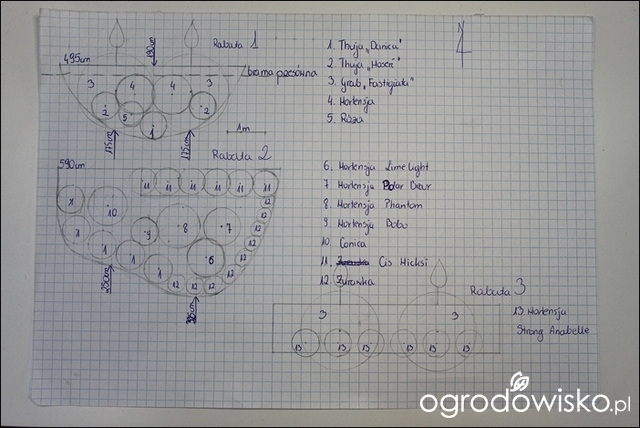 Rabata 1
495cm
190cm
brama przesówna
3 4 4 3
2 5 2
1
175cm 175cm
1m
1. Thuja „Danica"
2. Thuja „Hoseri"
3. Grab „Fastigiata"
4. Hortensja
5. Róża
Rabata 2
590cm
11 11 11 11 11 11
1 10 12
1 9 8 7 12
1 1 12
1 6 12
12 12 12 12
280cm
6. Hortensja Limelight
7 Hortensja Polar Bear
8 Hortensja Phantom
9 Hortensja Bobo
10 Conica
11. Cis Hicksi
12 Żurawka
Rabata 3
3 3
13 13 13 13 13 13
13 Hortensja
Strong Anabelle
ogrodowisko.pl